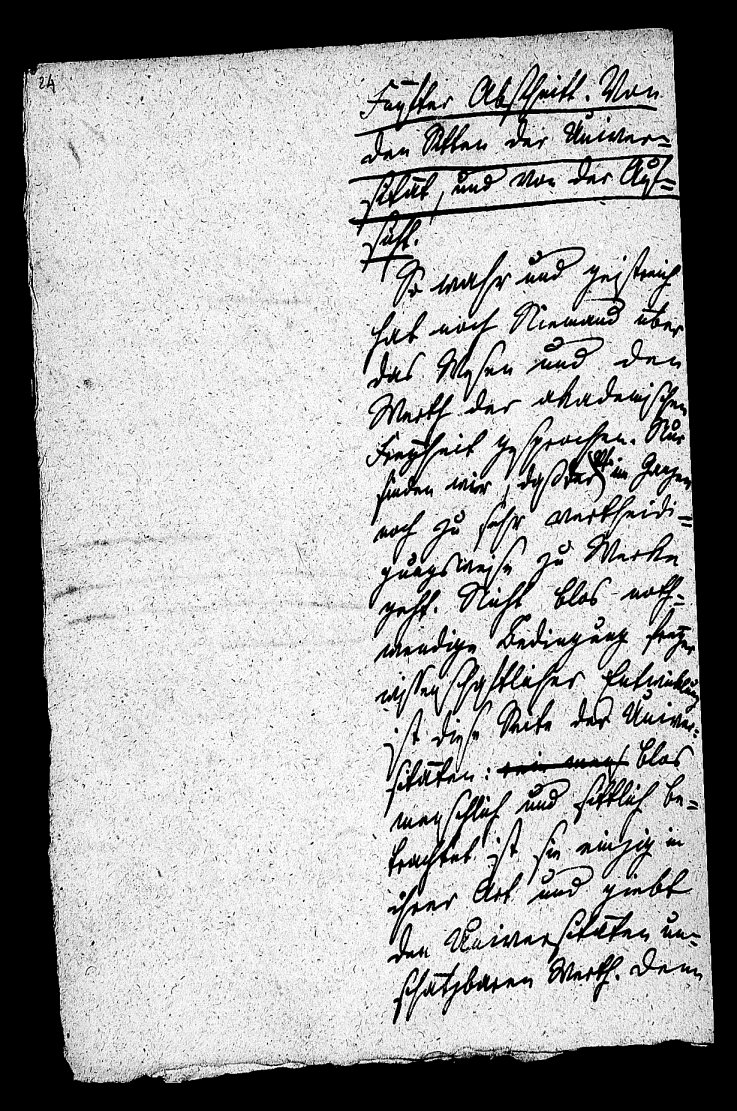 24
Fünfter Abschnitt. Von
den Sitten der Univer-
sität, und von der Auf-
sicht.
So wahr und geistreich
hat noch Niemand über
das Wesen und den
Werth der akademischen
Freyheit gesprochen. Nur
finden wir, daß der Vf. im Ganzen
noch zu sehr vertheidi-
gungsweise zu Werke
geht. Nicht blos noth-
wendige Bedingung freyer
wissenschaftlicher Entwicklung
ist diese Seite der Univer-
sitäten: blos
menschlich und sittlich be-
trachtet ist sie einzig in
ihrer Art und giebt
den Universitäten un-
schätzbaren Werth. Denn